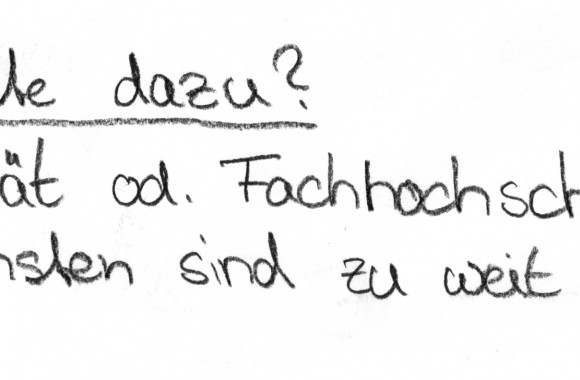 te dazu?
ät od. Fachhochsch
nsten sind zu weit